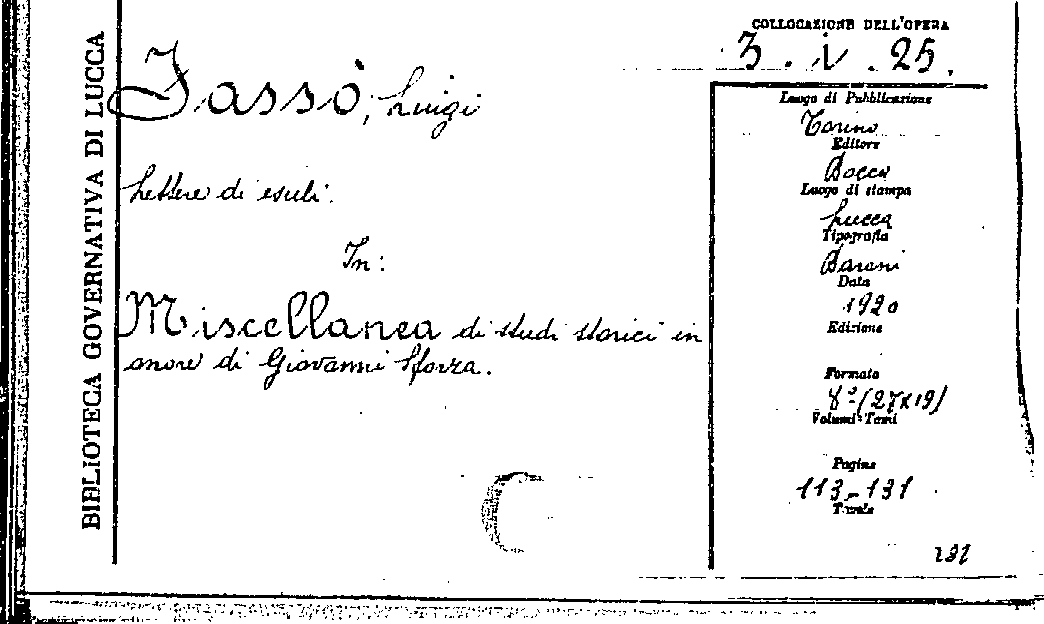 BIBLIOTECA GOVERNATIVA DI LUCCA
COLLOCAZIONE DELL'OPERA
3. IV. 25.
Fassò, Luigi
Lettere di esuli.
In:
Miscellanea di studi storici in
onore di Giovanni Sforza.
Luogo di Pubblicazione
Torino
Editore
Bocca
Luogo di stampa
Lucca
Tipografia
Baroni
Data
1920
Edizione
Formato
8° (27x19)
Volumi-Tomi
Pagine
113-131
Tavole